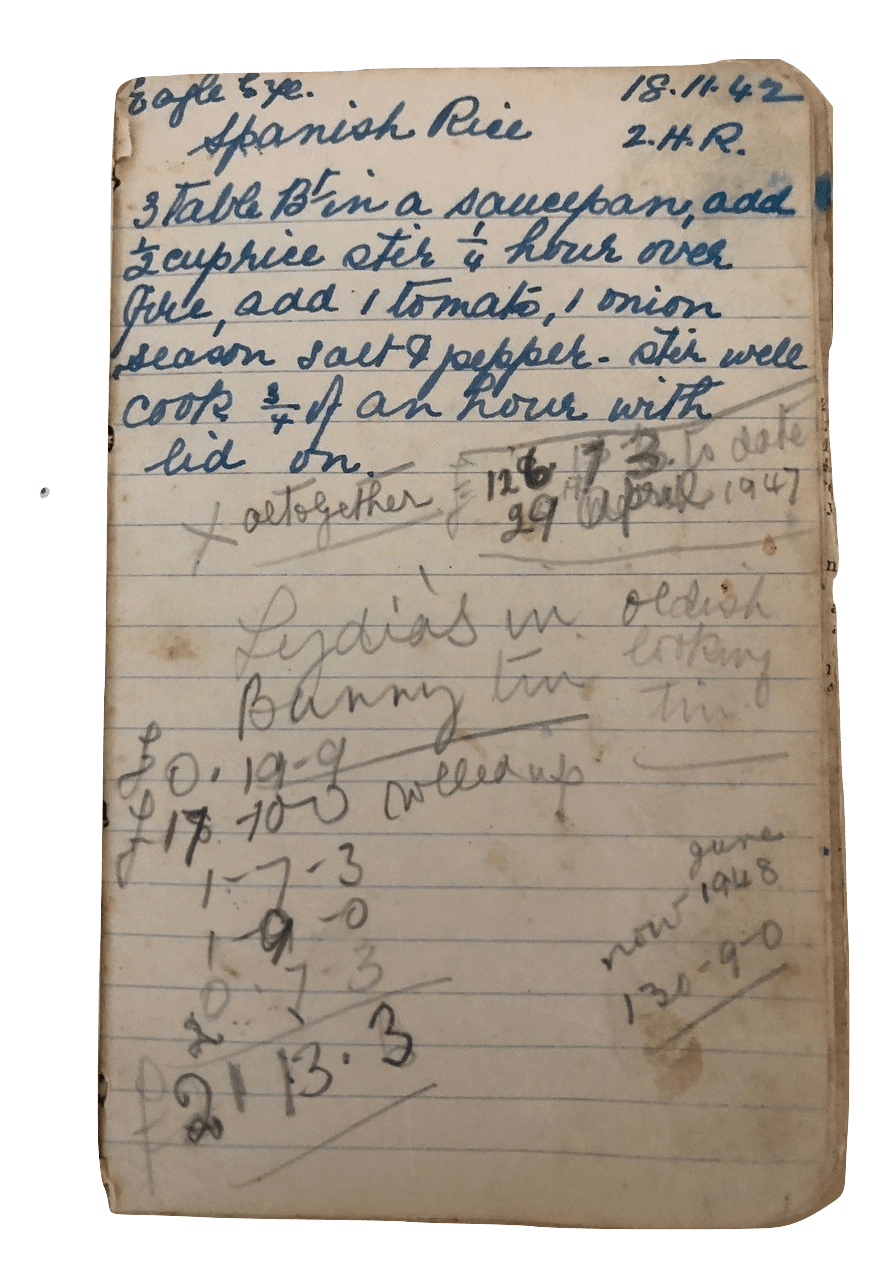 Eagle Eye. 18.11.42
Spanish Rice 2.H.R.
3 Table Bt in a saucepan, add
1/2 cup rice stir 1/4 hour over
fire, add 1 tomato, 1 onion
season salt & pepper - stir well
cook 3/4 of an hour with
lid on.
X altogether £ 128. 7 3. to date
29 April 1947
Lydia's in oldish
looking
Bunny tin tin
£ 0. 19-9
rolled up
£ 17 10 0
1-7-3
1-9-0
0.7 3
2
£ 21 13. 3
june
now 1948
130-9-0